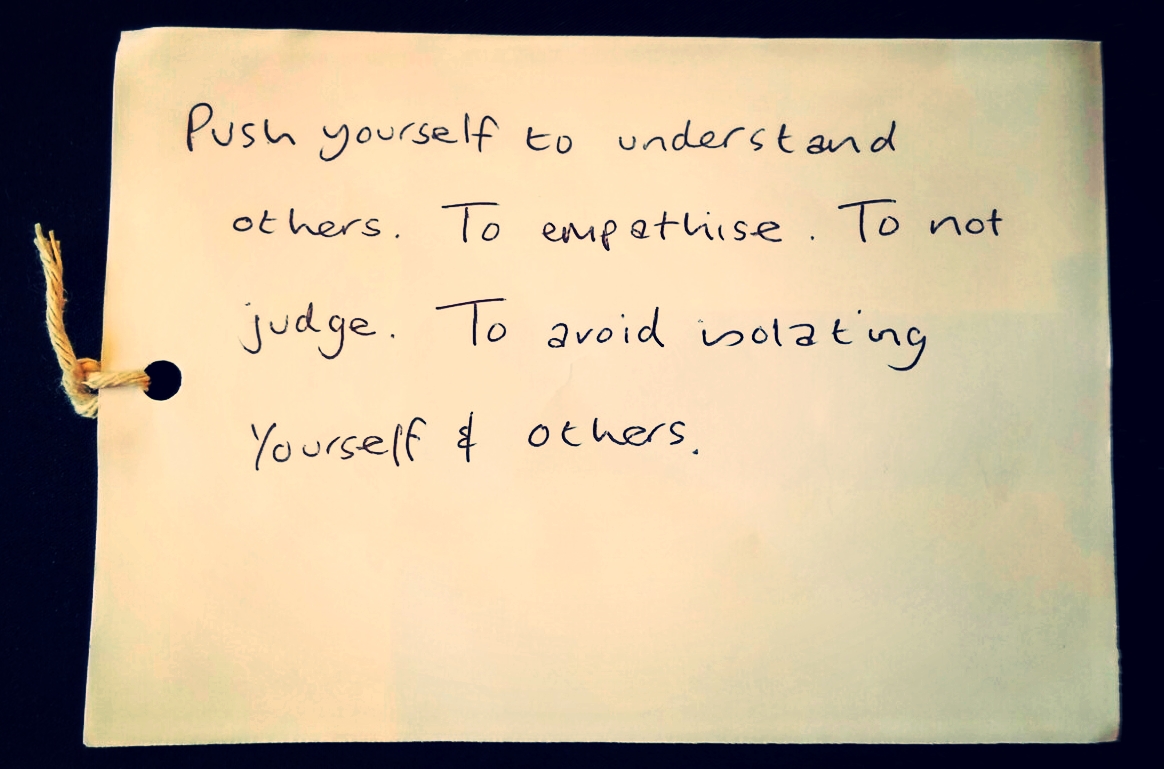 Push yourself to understand
others. To empathise. To not
judge. To avoid isolating
Yourself & others.